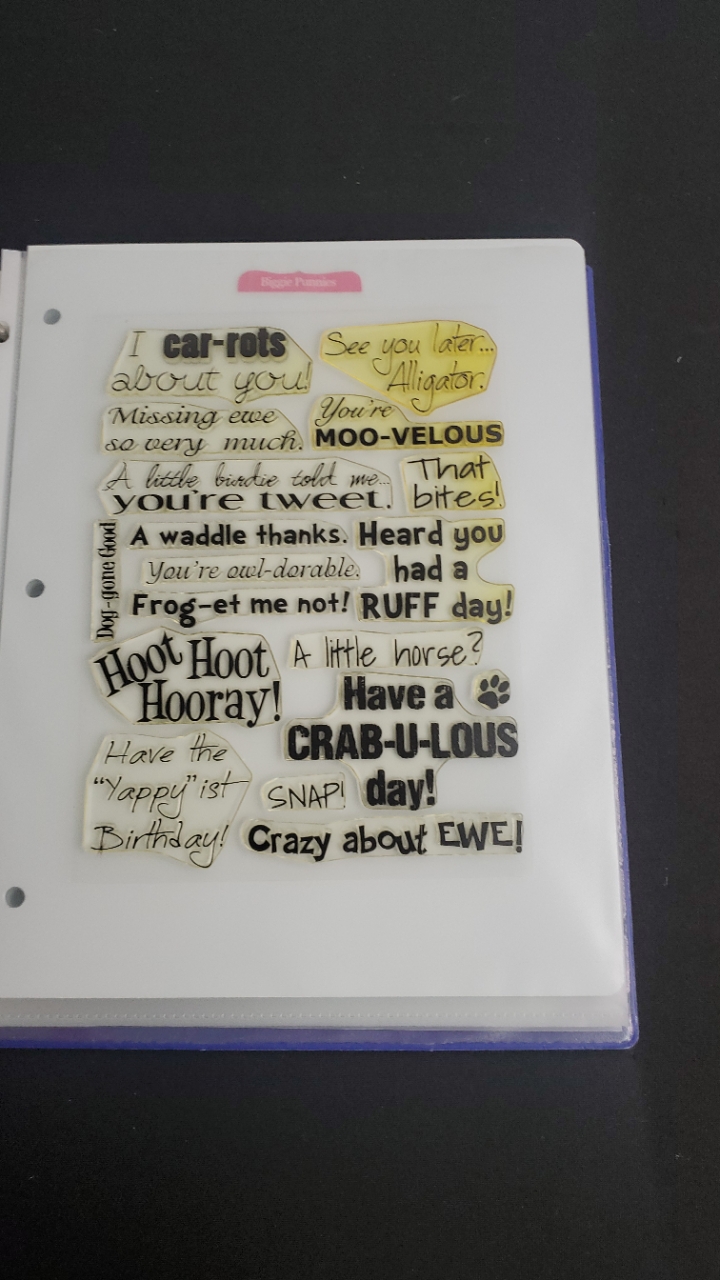 Biggie Punnies
I car-rots
about you!
See you later...
Alligator.
Missing ewe
so very much.
You're
MOO-VELOUS
A little birdie told me...
you're tweet.
That
bites!
Dog-gone Good
A waddle thanks.
You're owl-dorable.
Frog-et me not!
Heard you
had a
RUFF day!
Hoot Hoot
Hooray!
A little horse?
Have a
CRAB-U-LOUS
day!
Have the
"Yappy"ist
Birthday!
SNAP!
Crazy about EWE!